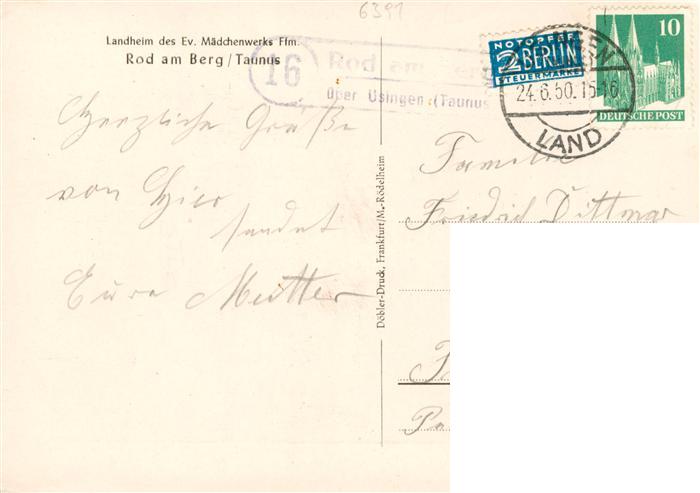 6391
Landheim des Ev. Mädchenwerks Ffm.
Rod am Berg/Taunus
16
Rod am Berg
über Usingen (Taunus
NOTOPFER
2 BERLIN
STEUERMARKE
24.6.50.15-16
LAND
10
DEUTSCHE POST
Herzliche Grüße
von Hier
sendet
Eure Mutter
Döbler-Druck, Frankfurt/M.-Rödelheim
Familie
Friedrich Dittmar